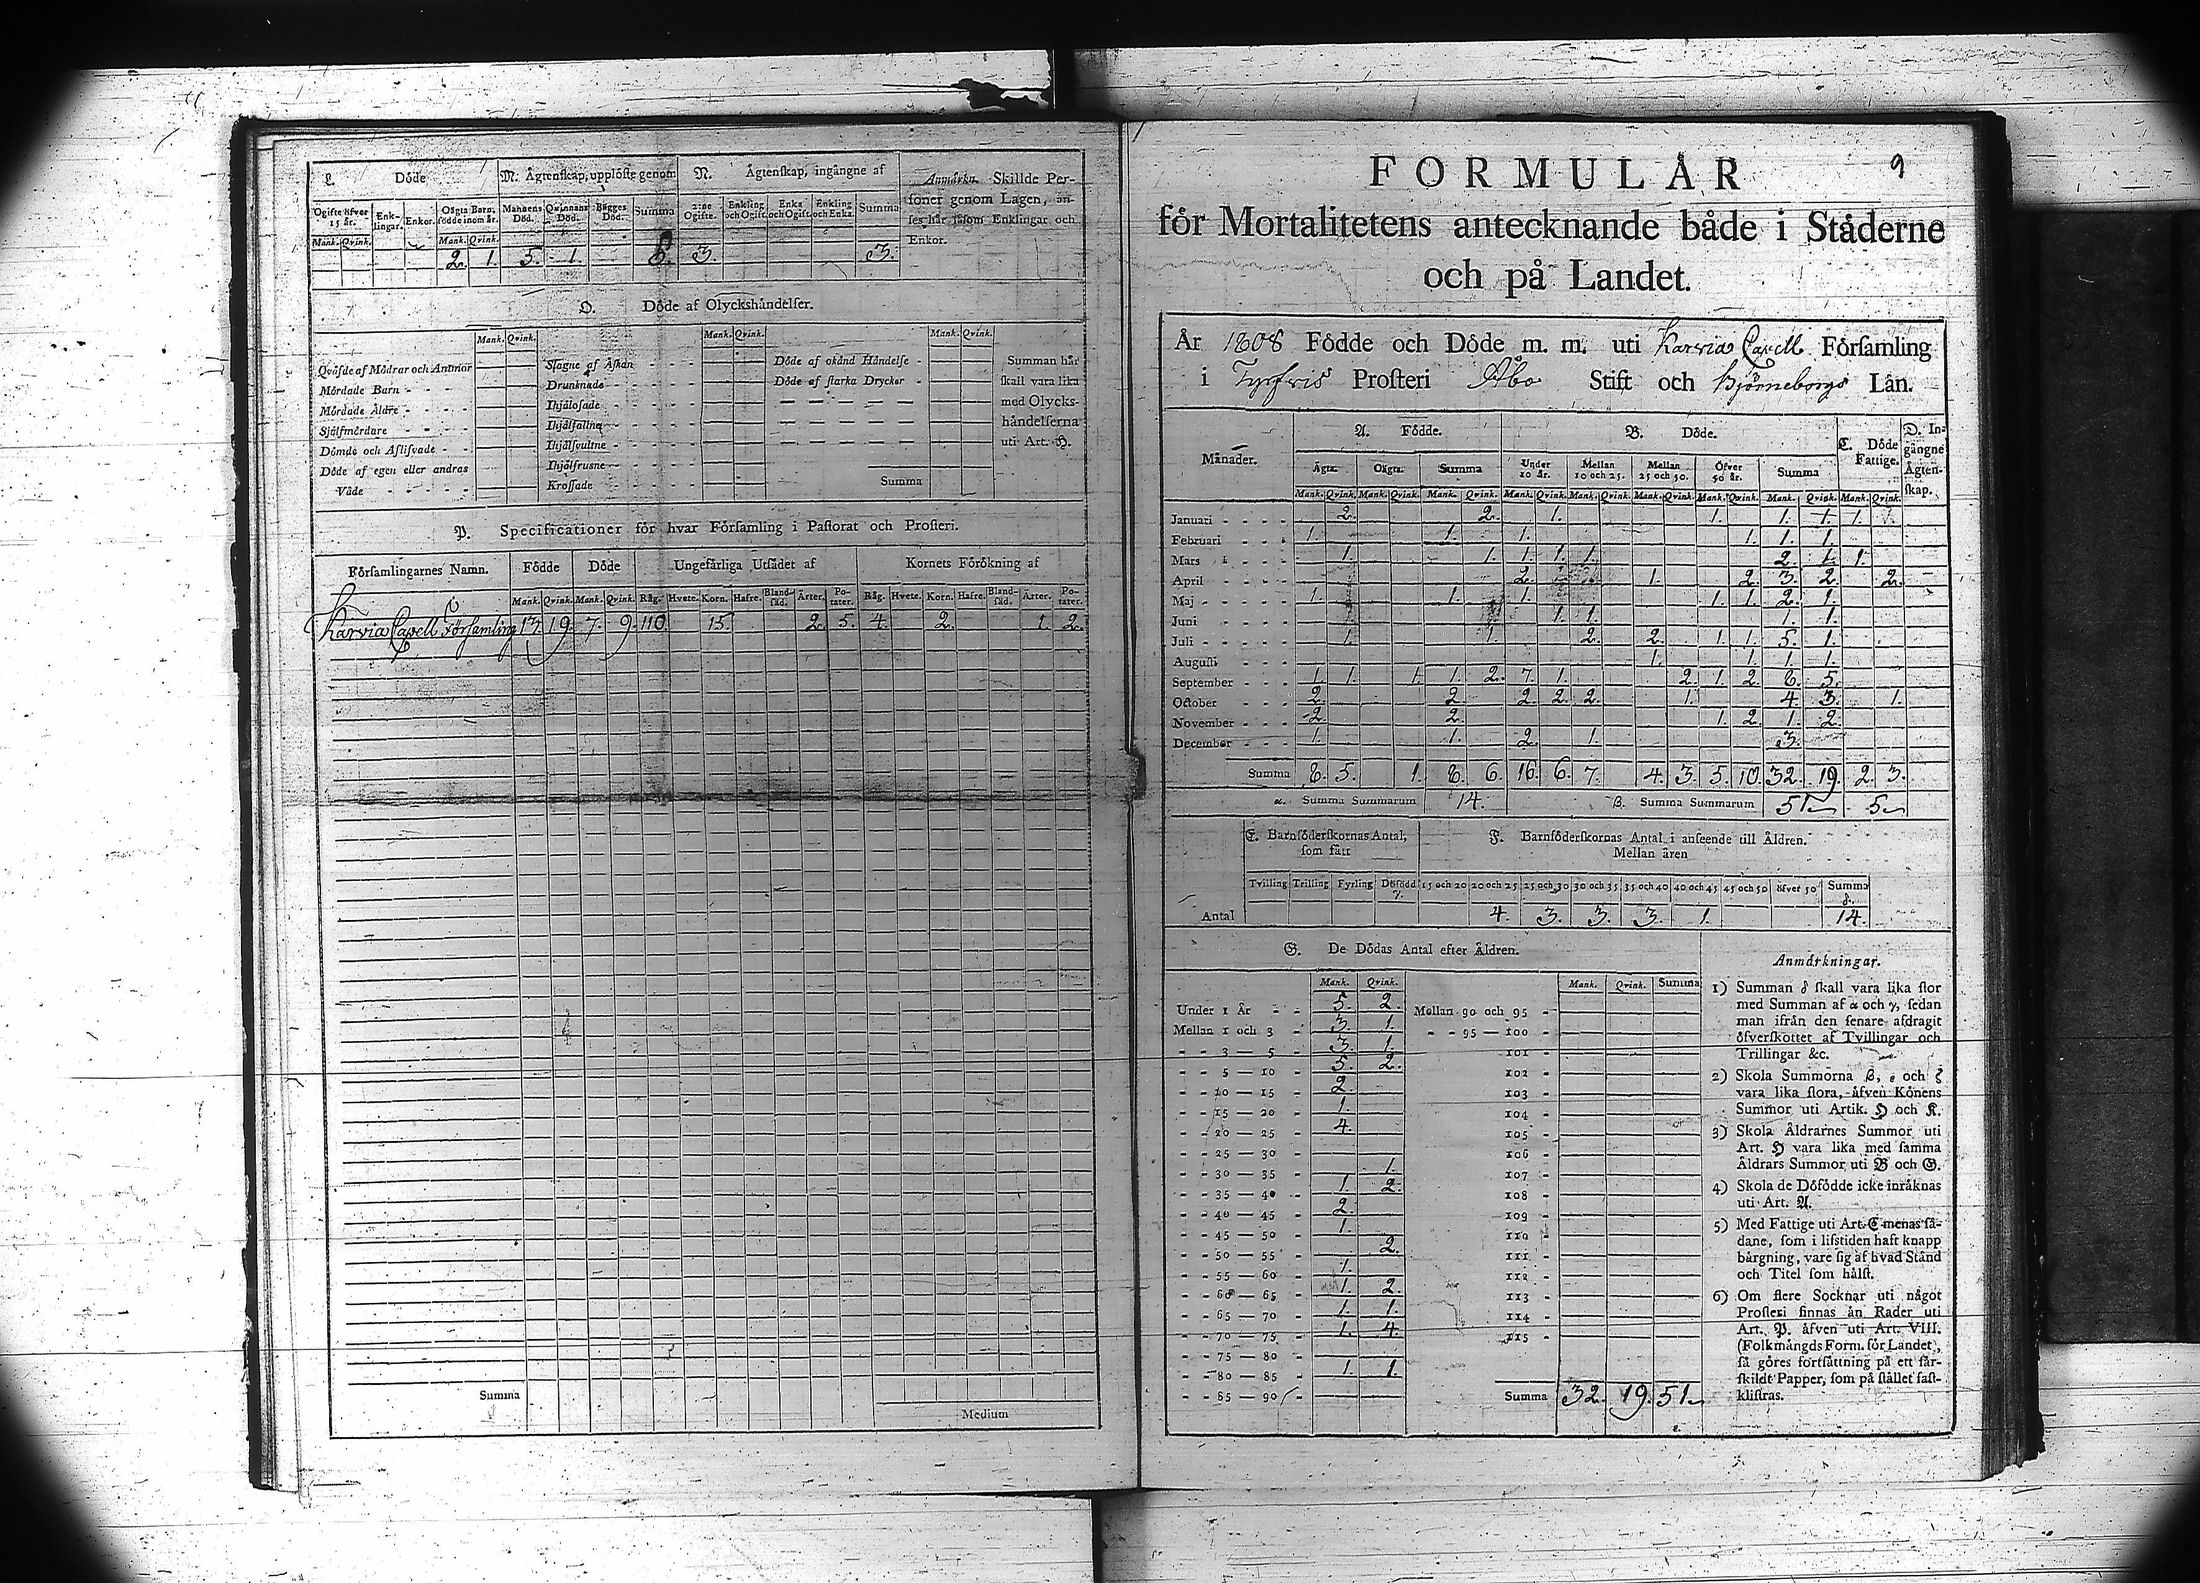 L. Döde
M. Ägtenskap, upplöste genom
N. Ägtenskap, ingångne af
Anmärkn. Skillde Personer genom Lagen, anses här såsom Enklingar och Enkor.
Ogifte öfver 15 år. Enklingar. Enkor. Oägta Barn, födde inom år. Mannens Död. Qvinnans Död. Bägges Död. Summa 2:ne Ogifte. Enkling och Ogift. Enka och Ogift. Enkling och Enka. Summa
Mank. Qvink. Mank. Qvink.
2. 1. 5. 1. 6. 3. 3.
O. Döde af Olyckshändelser.
Mank. Qvink. Mank. Qvink. Mank. Qvink.
Qväfde af Mödrar och Ammor
Mördade Barn
Mördade Äldre
Sjelfmördare
Dömde och Aflifvade
Döde af egen eller andras
Våde
Slagne af Åskan
Drunknade
Ihjälosade
Ihjälfallne
Ihjälsvultne
Ihjälfrusne
Krossade
Döde af okänd Händelse
Döde af starka Drycker
Summa
Summan här
skall vara lika
med Olycks-
händelserna
uti Art. H.
P. Specificationer för hvar Församling i Pastorat och Prosteri.
Församlingarnes Namn. Födde Döde Ungefärliga Utsädet af Kornets Förökning af
Mank. Qvink. Mank. Qvink. Råg. Hvete. Korn. Hafre. Blandsäd. Ärter. Potater. Råg. Hvete. Korn. Hafre. Blandsäd. Ärter. Potater.
Karvia Capell Församling 17 19 7. 9. 110 15. 2. 5. 4. 2. 1. 2.
Summa
Medium
9
FORMULÄR
för Mortalitetens antecknande både i Städerne
och på Landet.
År 1808 Födde och Döde m. m. uti Karvia Capell Församling
i Tyrfvis Prosteri Åbo Stift och Björneborgs Län.
Månader. A. Födde. B. Döde. C. Döde Fattige. D. Ingångne Ägtenskap.
Ägta. Oägta. Summa Under 10 år. Mellan 10 och 25. Mellan 25 och 50. Öfver 50 år. Summa
Mank. Qvink. Mank. Qvink. Mank. Qvink. Mank. Qvink. Mank. Qvink. Mank. Qvink. Mank. Qvink. Mank. Qvink. Mank. Qvink.
Januari 2. 2. 1. 1. 1. 1. 1.
Februari 1. 1. 1. 1. 1. 1.
Mars 1. 1. 1. 1. 1. 2. 1. 1.
April 2. 1. 2. 3. 2. 2.
Maj 1. 1. 1. 1. 1. 2. 1.
Juni 1. 1. 1. 1.
Juli 1. 1. 2. 2. 1. 1. 5. 1.
Augusti 1. 1. 1. 1.
September 1. 1. 1. 1. 2. 7. 1. 2. 1. 2. 8. 5.
October 2. 2. 2. 2. 2. 1. 4. 3. 1.
November 2. 2. 1. 2. 1. 2.
December 1. 1. 2. 1. 3.
Summa 8. 5. 1. 8. 6. 16. 6. 7. 4. 3. 5. 10. 32. 19. 2. 3.
α. Summa Summarum 14. β. Summa Summarum 51 5
E. Barnföderskornas Antal, som fått
F. Barnföderskornas Antal i anseende till Åldren.
Mellan åren
Tvilling Trilling Fyrling Dödfödd γ. 15 och 20 20 och 25 25 och 30 30 och 35 35 och 40 40 och 45 45 och 50 öfver 50 Summa δ.
Antal 4. 3. 3. 3. 1. 14.
G. De Dödas Antal efter Åldren.
Mank. Qvink. Mank. Qvink. Summa
Under 1 År 5. 2. Mellan 90 och 95
Mellan 1 och 3 3. 1. 95 — 100
3 — 5 3. 1. 101
5 — 10 5. 2. 102
10 — 15 2. 103
15 — 20 1. 104
20 — 25 4. 105
25 — 30 106
30 — 35 1. 107
35 — 40 1. 2. 108
40 — 45 2. 109
45 — 50 1. 110
50 — 55 2. 111
55 — 60 1. 112
60 — 65 1. 2. 113
65 — 70 1. 1. 114
70 — 75 1. 4. 115
75 — 80
80 — 85 1. 1.
85 — 90 Summa 32. 19. 51
ε.
Anmärkningar.
1) Summan δ skall vara lika stor
med Summan af α och γ, sedan
man ifrån den senare afdragit
öfverskottet af Tvillingar och
Trillingar &c.
2) Skola Summorna β, ε och ζ
vara lika stora, äfven Könens
Summor uti Artik. H och K.
3) Skola Åldrarnes Summor uti
Art. H vara lika med samma
Åldrars Summor uti B och G.
4) Skola de Döfödde icke inräknas
uti Art. A.
5) Med Fattige uti Art. C menas så-
dane, som i lifstiden haft knapp
bärgning, vare sig af hvad Stånd
och Titel som hälst.
6) Om flere Socknar uti något
Prosteri finnas än Rader uti
Art. P. äfven uti Art. VIII.
(Folkmängds Form. för Landet),
så göres fortsättning på ett sär-
skildt Papper, som på stället fast-
klistras.